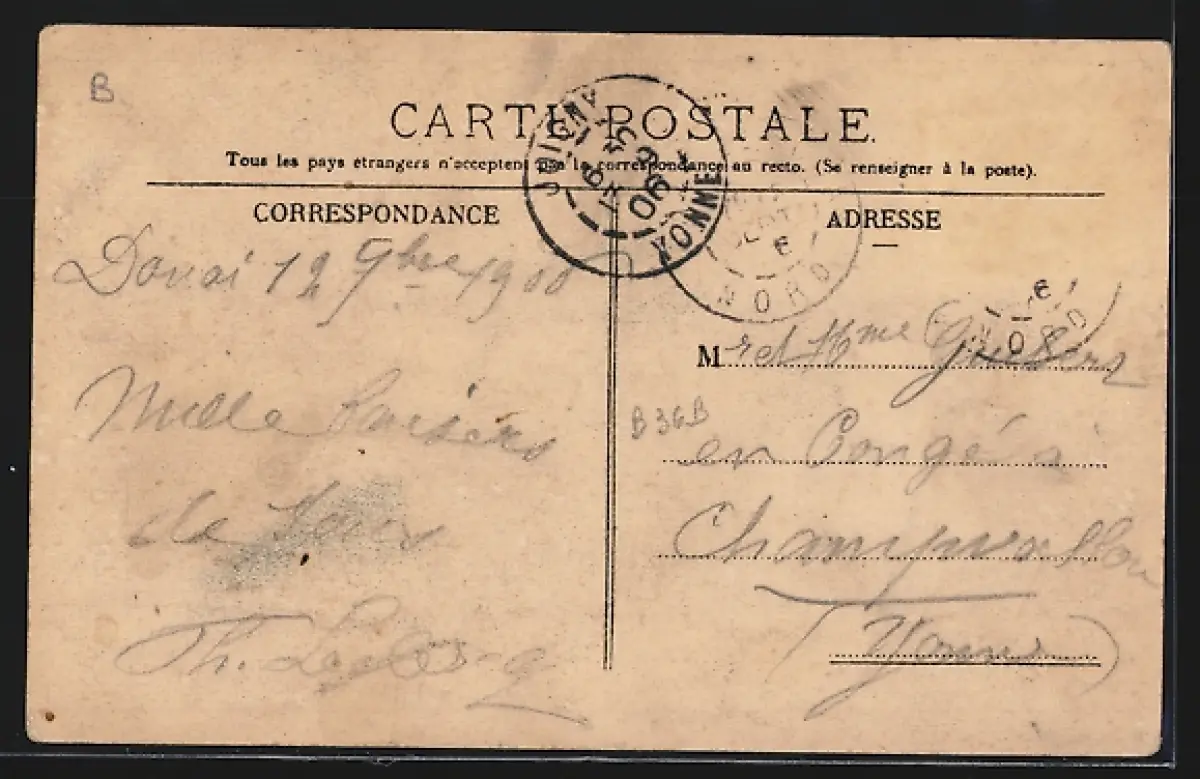 B
CARTE POSTALE.
Tous les pays étrangers n'acceptent pas la correspondance au recto. (Se renseigner à la poste).
CORRESPONDANCE
ADRESSE
JOIGNY
YONNE
06
NORD
6
Douai 12 9bre 1900
Mille baisers
de tous
Th. Leclercq
M r et Mme
B36B
en Congé à
Champvallon
(Yonne)